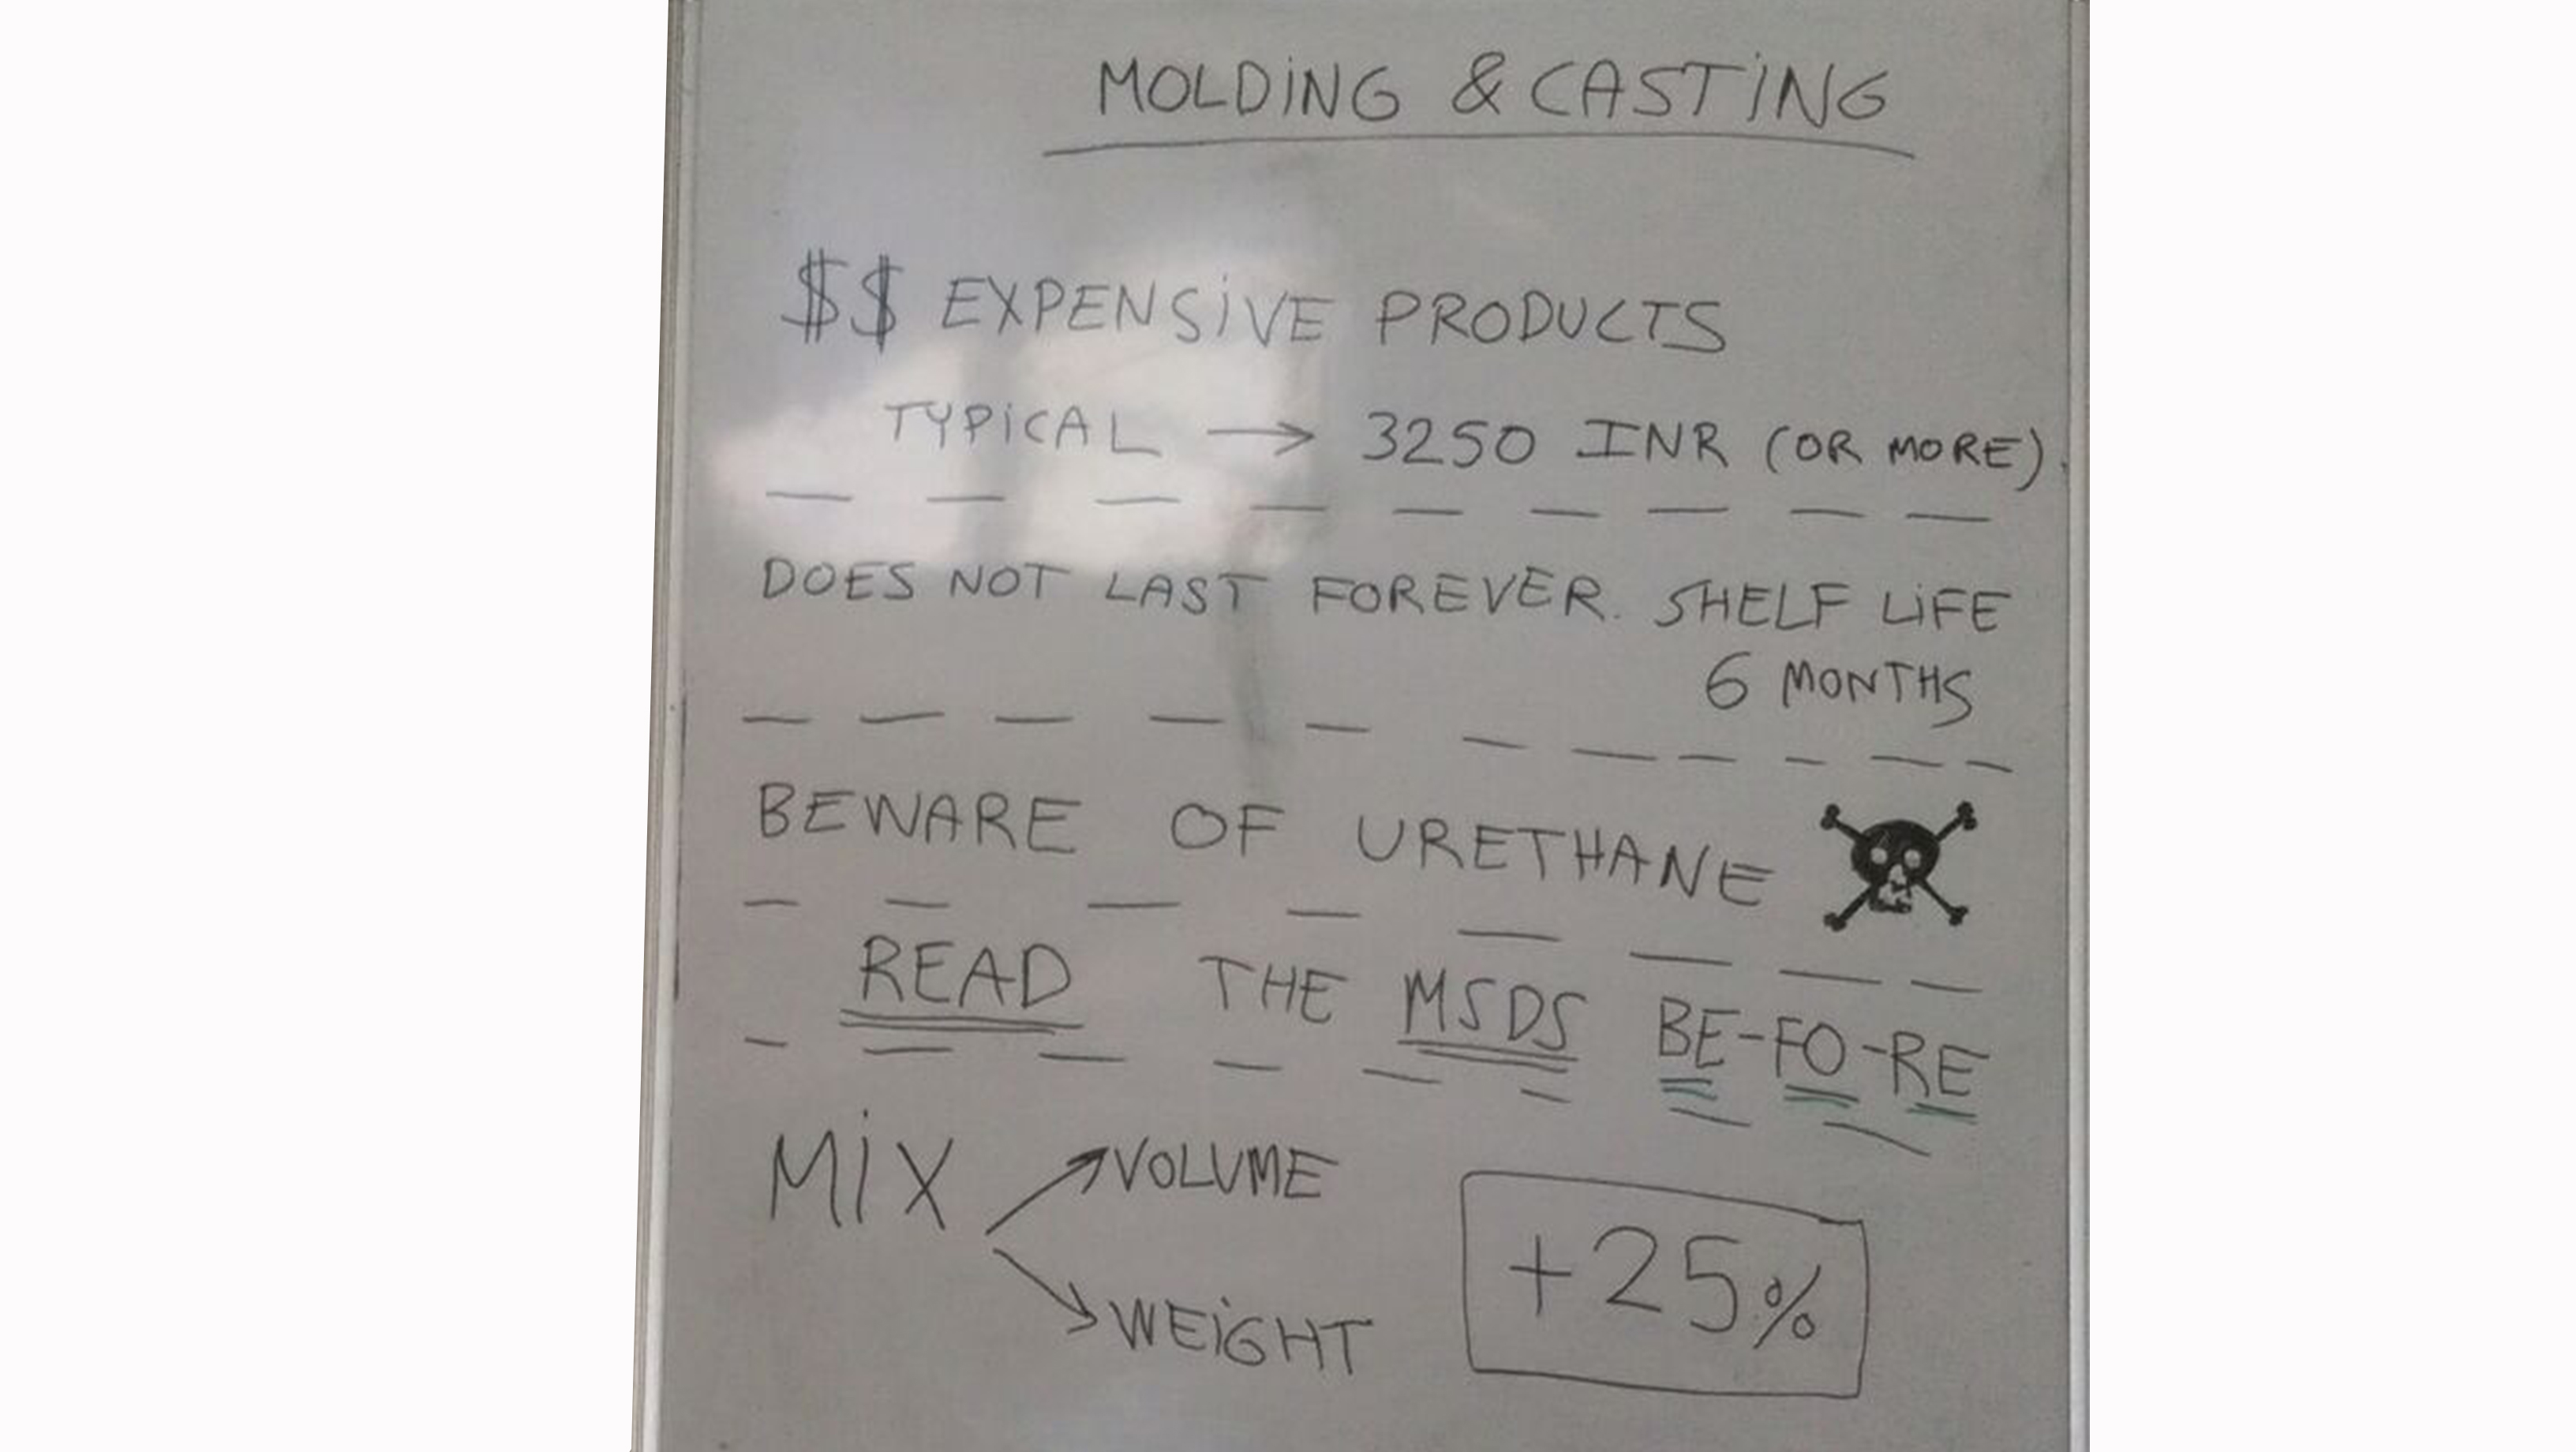 MOLDING & CASTING
$$ EXPENSIVE PRODUCTS
TYPICAL → 3250 INR (OR MORE).
DOES NOT LAST FOREVER. SHELF LIFE
6 MONTHS
BEWARE OF URETHANE
READ THE MSDS BE-FO-RE
MIX
VOLUME
WEIGHT
+25%